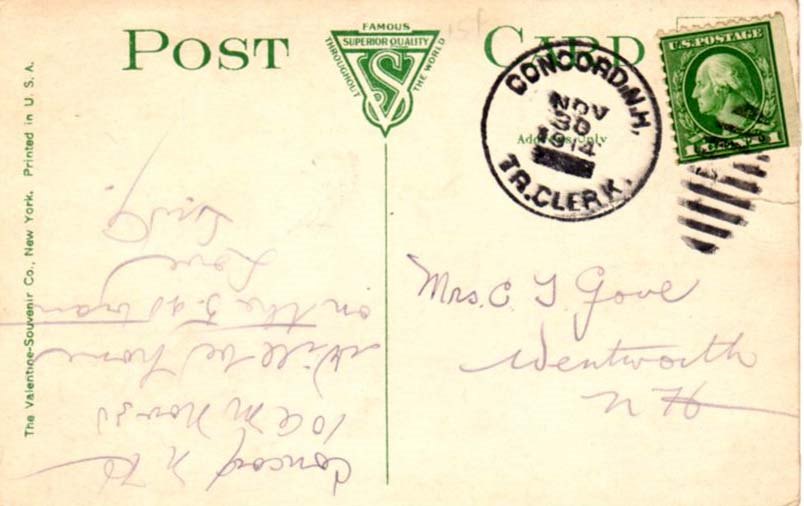 POST CARD
FAMOUS
SUPERIOR QUALITY
THROUGHOUT THE WORLD
VS
U.S. POSTAGE
CONCORD, N.H.
NOV
30
1914
TR. CLERK.
Address Only
Mrs. C
Gove
Wentworth
N H
Concord N H
10 a m Nov 30
Will be home
on the 5.40 train
Love
The Valentine-Souvenir Co., New York. Printed in U. S. A.